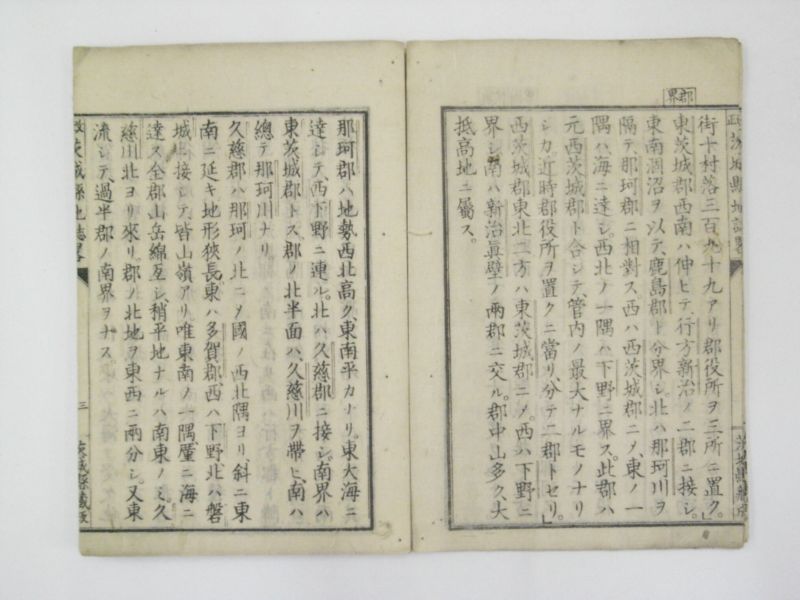 郡界
街十村落三百九十九アリ郡役所ヲ三所ニ置ク」
東茨城郡西南ハ伸ヒテ行方新治ノ二郡ニ接シ
東南涸沼ヲ以テ鹿島郡ト分界シ北ハ那珂川ヲ
隔テ那珂郡ニ相對ス西ハ西茨城郡ニメ東ノ一
隅ハ海ニ達シ西北ノ一隅ハ下野ニ界ス此郡ハ
元西茨城郡ト合シテ管内ノ最大ナルモノナリ
シカ近時郡役所ヲ置クニ當リ分テ二郡トセリ」
西茨城郡東北二方ハ東茨城郡ニメ西ハ下野ニ
界シ南ハ新治眞壁ノ兩郡ニ交ル郡中山多ク大
抵高地ニ屬ス。
那珂郡ハ地勢西北高ク東南平カナリ。東大海ニ
達シテ西下野ニ連ル。北ハ久慈郡ニ接シ南界ハ
東茨城郡トス郡ノ北半面ハ久慈川ヲ帶ヒ南ハ
總テ那珂川ナリ
久慈郡ハ那珂ノ北ニメ國ノ西北隅ヨリ斜ニ東
南ニ延キ地形狹長東ハ多賀郡西ハ下野北ハ磐
城ニ接シテ皆山嶺アリ唯東南ノ一隅僅ニ海ニ
達ス全郡山岳綿亙シ稍平地ナルハ南東ノミ久
慈川北ヨリ來リ郡ノ北地ヲ東西ニ兩分シ又東
流シテ過半郡ノ南界ヲナス
茨城縣地誌畧
三
茨城縣藏版